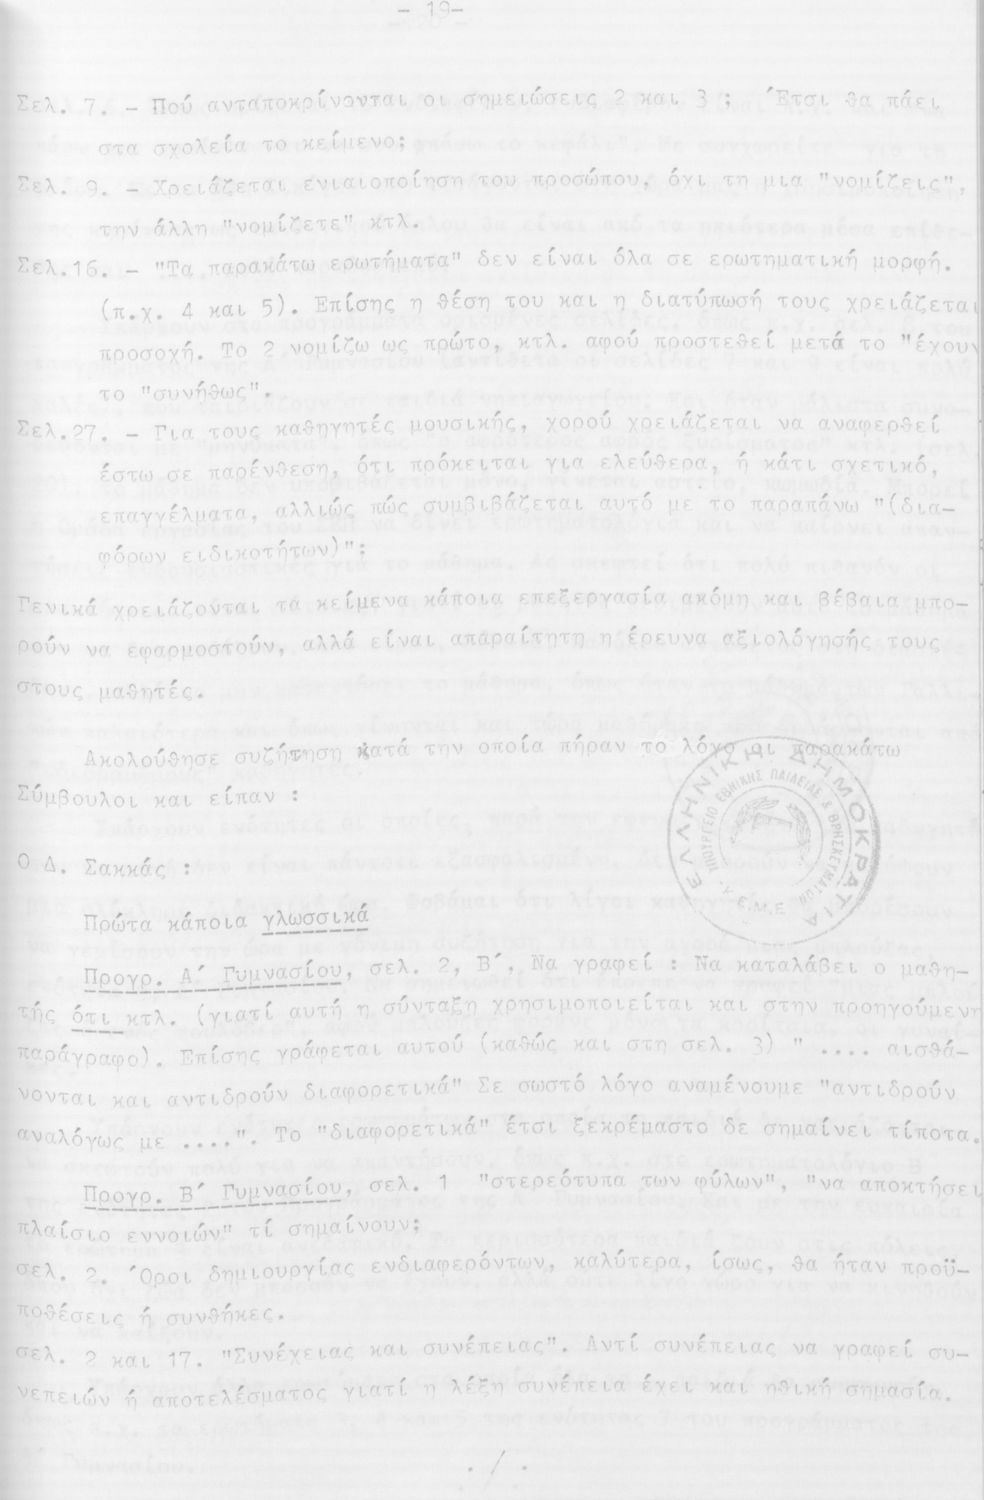 - 19-
Σελ. 7. - Πού ανταποκρίνονται οι σημειώσεις 2 και 3 ; Έτσι θα πάει
στα σχολεία το κείμενο;
Σελ. 9. - Χρειάζεται ενιαιοποίηση του προσώπου, όχι τη μια "νομίζεις",
την άλλη "νομίζετε" κτλ.
Σελ.16. - "Τα παρακάτω ερωτήματα" δεν είναι όλα σε ερωτηματική μορφή.
(π.χ. 4 και 5). Επίσης η θέση του και η διατύπωσή τους χρειάζεται
προσοχή. Το 2 νομίζω ως πρώτο, κτλ. αφού προστεθεί μετά το "έχουν
το "συνήθως".
Σελ.27. - Για τους καθηγητές μουσικής, χορού χρειάζεται να αναφερθεί
έστω σε παρένθεση, ότι πρόκειται για ελεύθερα, ή κάτι σχετικό,
επαγγέλματα, αλλιώς πώς συμβιβάζεται αυτό με το παραπάνω "(δια-
φόρων ειδικοτήτων)";
Γενικά χρειάζονται τα κείμενα κάποια επεξεργασία ακόμη και βέβαια μπο-
ρούν να εφαρμοστούν, αλλά είναι απαραίτητη η έρευνα αξιολόγησής τους
στους μαθητές.
Ακολούθησε συζήτηση κατά την οποία πήραν το λόγο οι παρακάτω
Σύμβουλοι και είπαν :
ΕΛΛΗΝΙΚΗ ΔΗΜΟΚΡΑΤΙΑ
ΥΠΟΥΡΓΕΙΟ ΕΘΝΙΚΗΣ ΠΑΙΔΕΙΑΣ & ΘΡΗΣΚΕΥΜΑΤΩΝ
Κ.Ε.Μ.Ε
Ο Δ. Σακκάς :
Πρώτα κάποια γλωσσικά
Προγρ. Α΄ Γυμνασίου, σελ. 2, Β΄, Να γραφεί : Να καταλάβει ο μαθη-
τής ότι κτλ. (γιατί αυτή η σύνταξη χρησιμοποιείται και στην προηγούμενη
παράγραφο). Επίσης γράφεται αυτού (καθώς και στη σελ. 3) " .... αισθά-
νονται και αντιδρούν διαφορετικά" Σε σωστό λόγο αναμένουμε "αντιδρούν
αναλόγως με ....". Το "διαφορετικά" έτσι ξεκρέμαστο δε σημαίνει τίποτα.
Προγρ. Β΄ Γυμνασίου, σελ. 1 "στερεότυπα των φύλων", "να αποκτήσει
πλαίσιο εννοιών" τί σημαίνουν;
σελ. 2. Όροι δημιουργίας ενδιαφερόντων, καλύτερα, ίσως, θα ήταν προϋ-
ποθέσεις ή συνθήκες.
σελ. 2 και 17. "Συνέχειας και συνέπειας". Αντί συνέπειας να γραφεί συ-
νεπειών ή αποτελέσματος γιατί η λέξη συνέπεια έχει και ηθική σημασία.
. / .